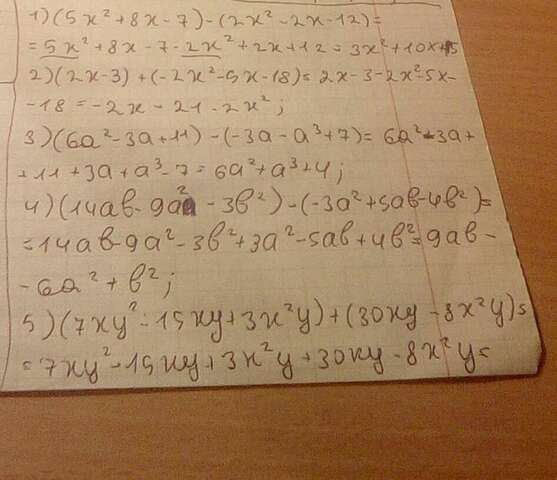 1) (5x² + 8x - 7) - (2x² - 2x - 12) =
= 5x² + 8x - 7 - 2x² + 2x + 12 = 3x² + 10x + 5
2) (2x - 3) + (-2x² - 5x - 18) = 2x - 3 - 2x² - 5x -
- 18 = -2x - 21 - 2x²;
3) (6a² - 3a + 11) - (-3a - a³ + 7) = 6a² - 3a +
+ 11 + 3a + a³ - 7 = 6a² + a³ + 4;
4) (14ab - 9a² - 3b²) - (-3a² + 5ab - 4b²) =
= 14ab - 9a² - 3b² + 3a² - 5ab + 4b² = 9ab -
- 6a² + b²;
5) (7xy² - 15xy + 3x²y) + (30xy - 8x²y) =
= 7xy² - 15xy + 3x²y + 30xy - 8x²y =